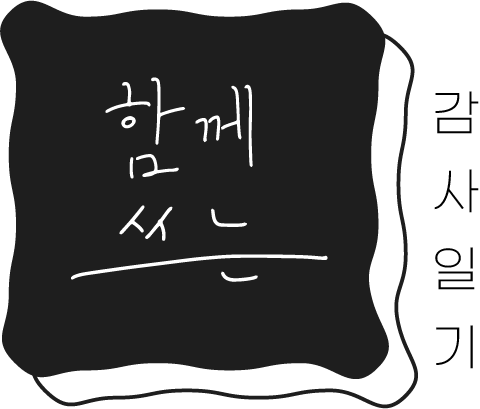 함께
쓰는
감사일기